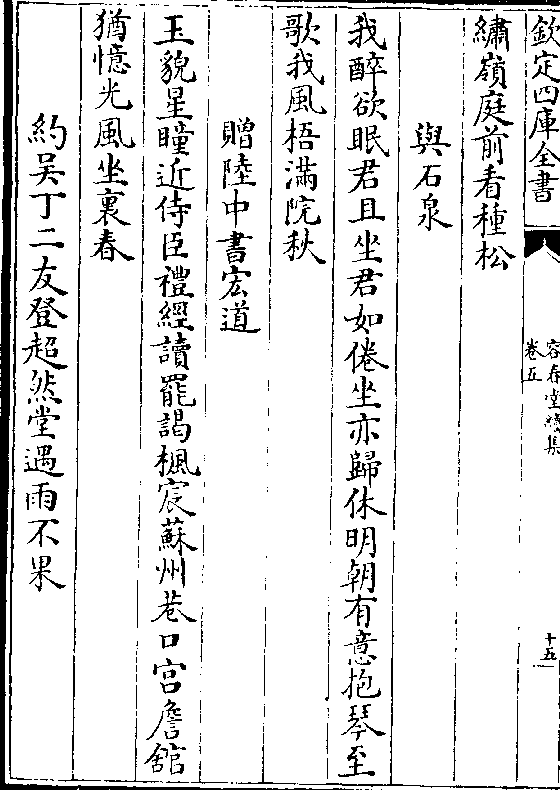 欽定四庫全書
容春堂續集
卷五
十五
繡嶺庭前看種松
與石泉
我醉欲眠君且坐君如倦坐亦歸休明朝有意抱琴至
歌我風梧滿院秋
贈陸中書宏道
玉貌星瞳近侍臣禮經讀罷謁楓宸蘇州巷口宫詹舘
猶憶光風坐裏春
約吴丁二友登超然堂遇雨不果